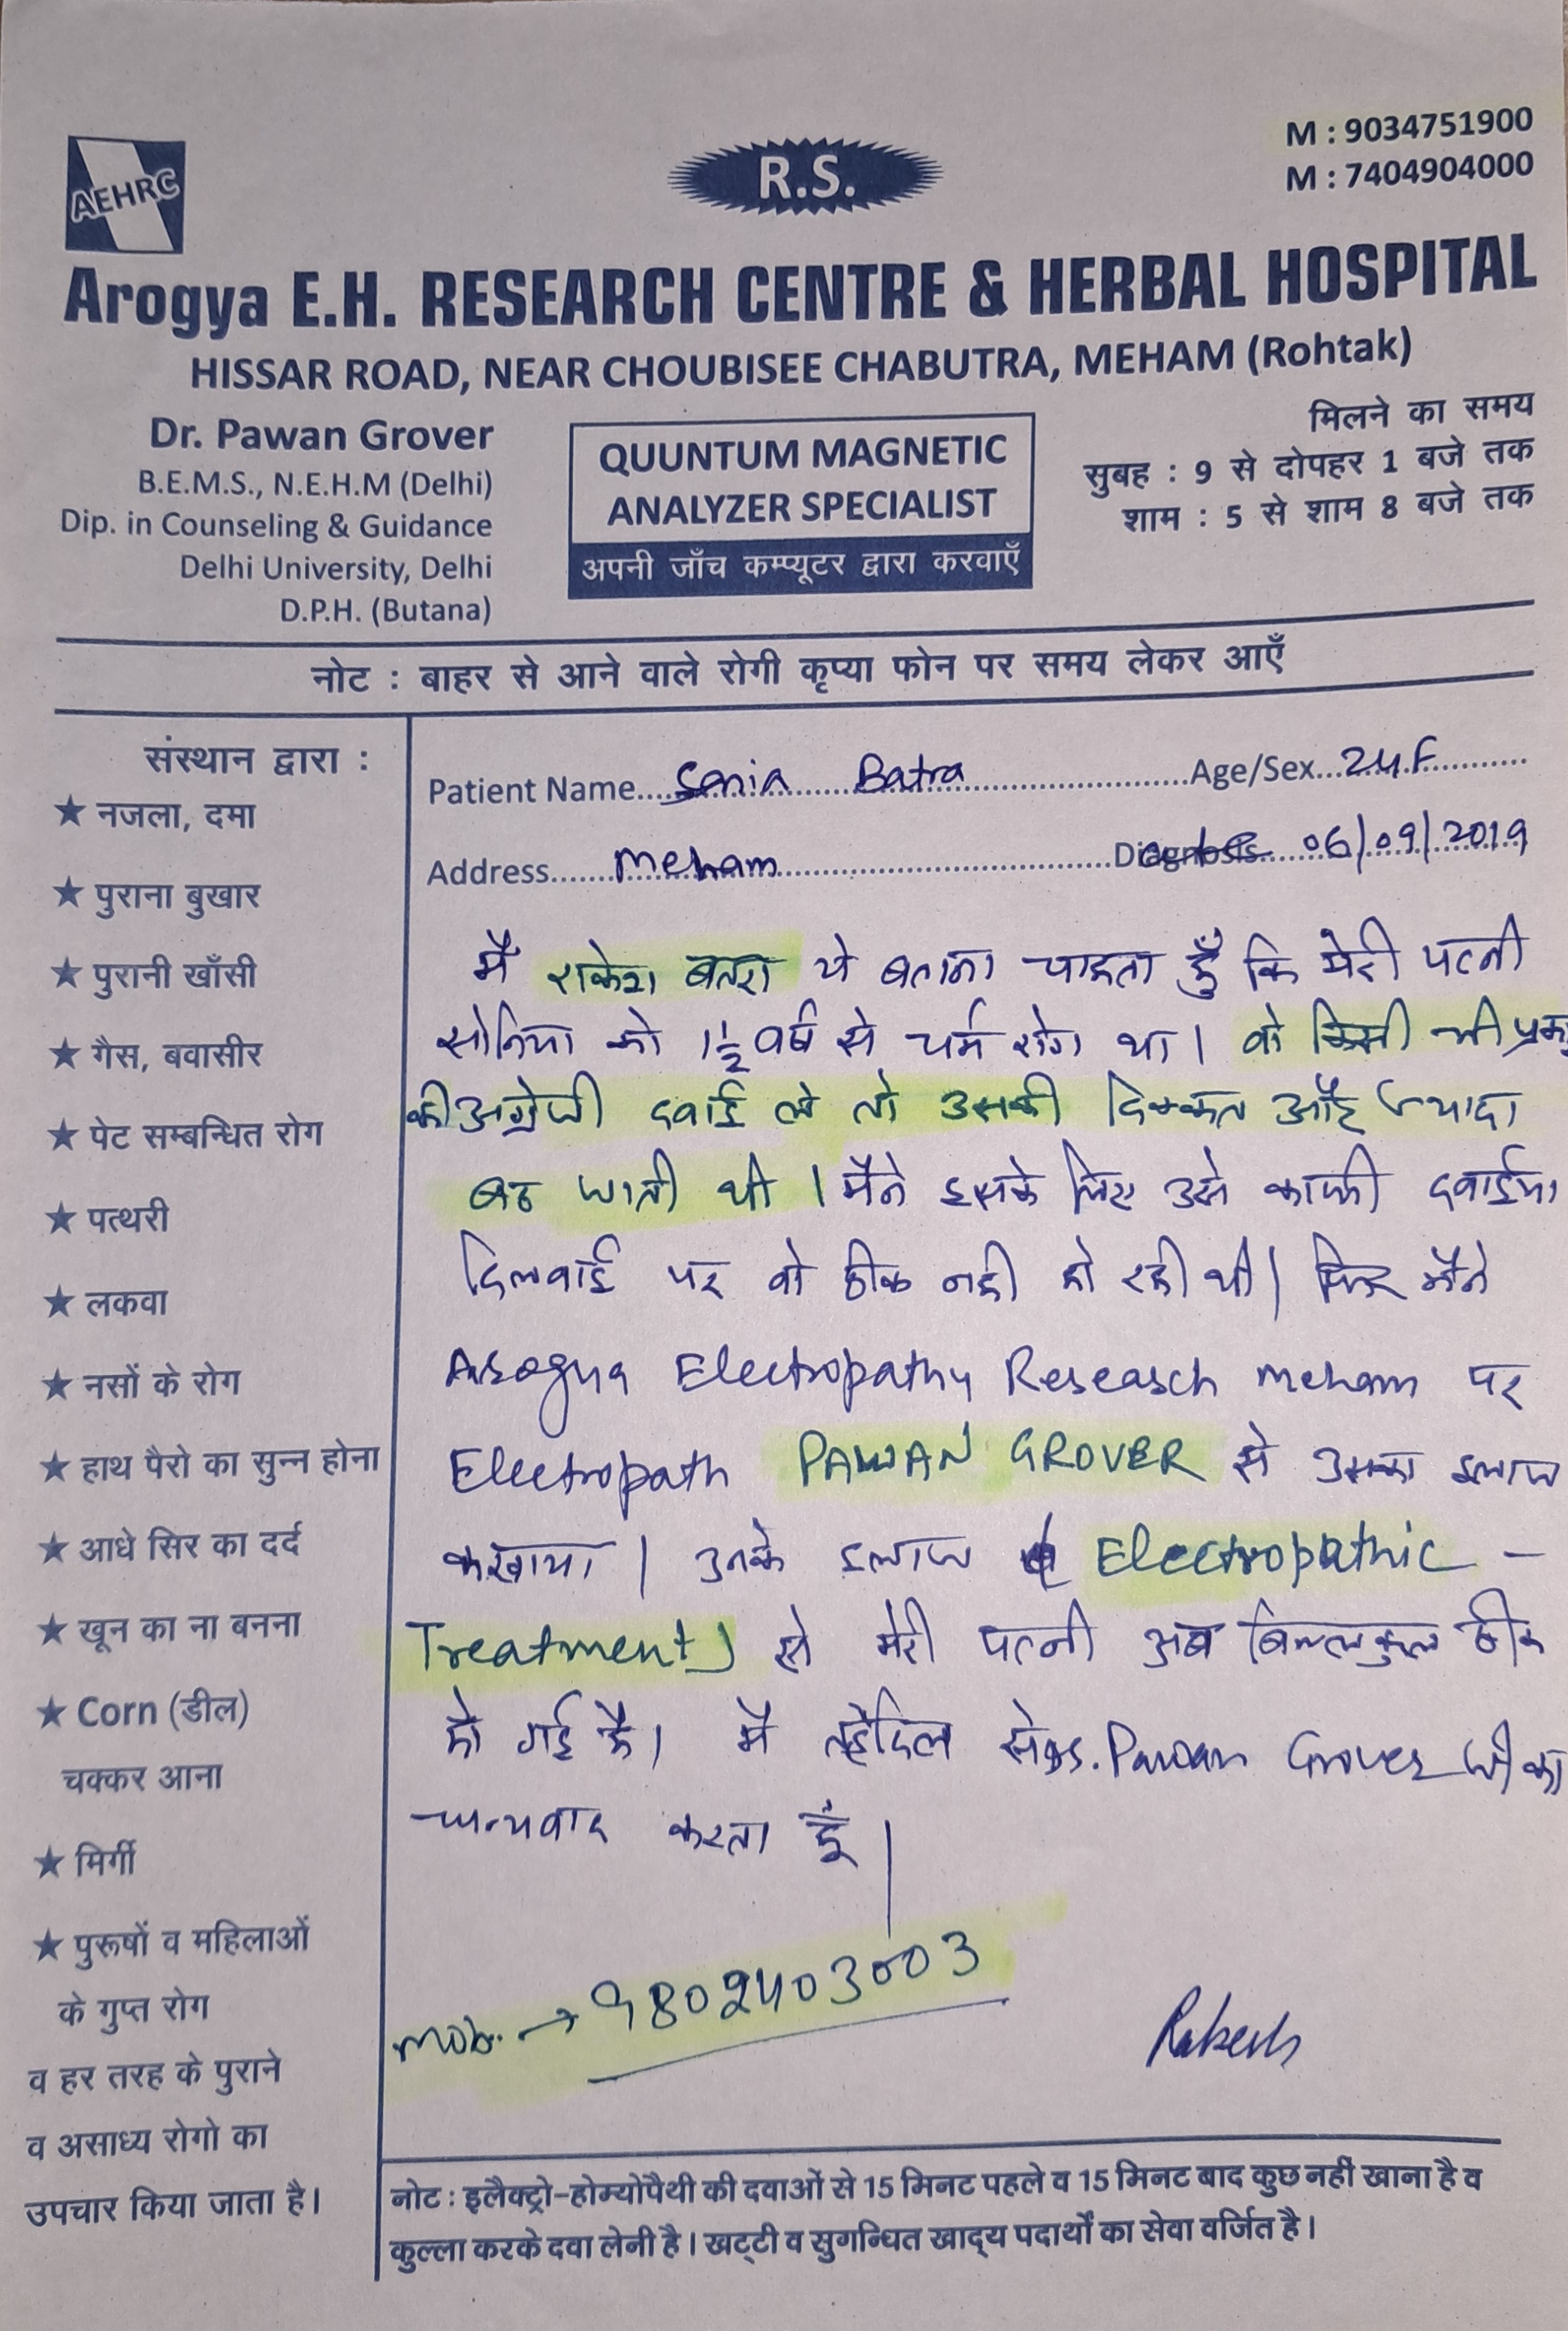 AEHRC
R.S.
M : 9034751900
M : 7404904000
Arogya E.H. RESEARCH CENTRE & HERBAL HOSPITAL
HISSAR ROAD, NEAR CHOUBISEE CHABUTRA, MEHAM (Rohtak)
Dr. Pawan Grover
B.E.M.S., N.E.H.M (Delhi)
Dip. in Counseling & Guidance
Delhi University, Delhi
D.P.H. (Butana)
QUUNTUM MAGNETIC
ANALYZER SPECIALIST
अपनी जाँच कम्प्यूटर द्वारा करवाएँ
मिलने का समय
सुबह : 9 से दोपहर 1 बजे तक
शाम : 5 से शाम 8 बजे तक
नोट : बाहर से आने वाले रोगी कृप्या फोन पर समय लेकर आएँ
संस्थान द्वारा :
★ नजला, दमा
★ पुराना बुखार
★ पुरानी खाँसी
★ गैस, बवासीर
★ पेट सम्बन्धित रोग
★ पत्थरी
★ लकवा
★ नसों के रोग
★ हाथ पैरो का सुन्न होना
★ आधे सिर का दर्द
★ खून का ना बनना
★ Corn (डील)
चक्कर आना
★ मिर्गी
★ पुरूषों व महिलाओं
के गुप्त रोग
व हर तरह के पुराने
व असाध्य रोगो का
उपचार किया जाता है।
Patient Name Sonia Batra Age/Sex 24F
Address Meham Diagnosis 06/09/2019
मैं राकेश बतरा ये बताना चाहता हूँ कि मेरी पत्नी
सोनिया को 1½ वर्ष से चर्म रोग था। वो किसी भी
की अंग्रेजी दवाई ले तो उसकी दिक्कत और ज्यादा
बढ जाती थी। मैंने इसके लिए उसे काफी दवाईया
दिलवाई पर वो ठीक नही हो रही थी। फिर मैंने
Arogya Electropathy Research Meham पर
Electropath PAWAN GROVER से उसका इलाज
करवाया। उनके इलाज ( Electropathic -
Treatment) से मेरी पत्नी अब बिल्लकुल ठीक
हो गई है। मै तहेदिल से Dr. Pawan Grover जी का
धन्यवाद करता हूँ।
Mob. → 9802403003
Rakesh
नोट : इलैक्ट्रो-होम्योपैथी की दवाओं से 15 मिनट पहले व 15 मिनट बाद कुछ नहीं खाना है व
कुल्ला करके दवा लेनी है। खट्टी व सुगन्धित खाद्य पदार्थों का सेवा वर्जित है।